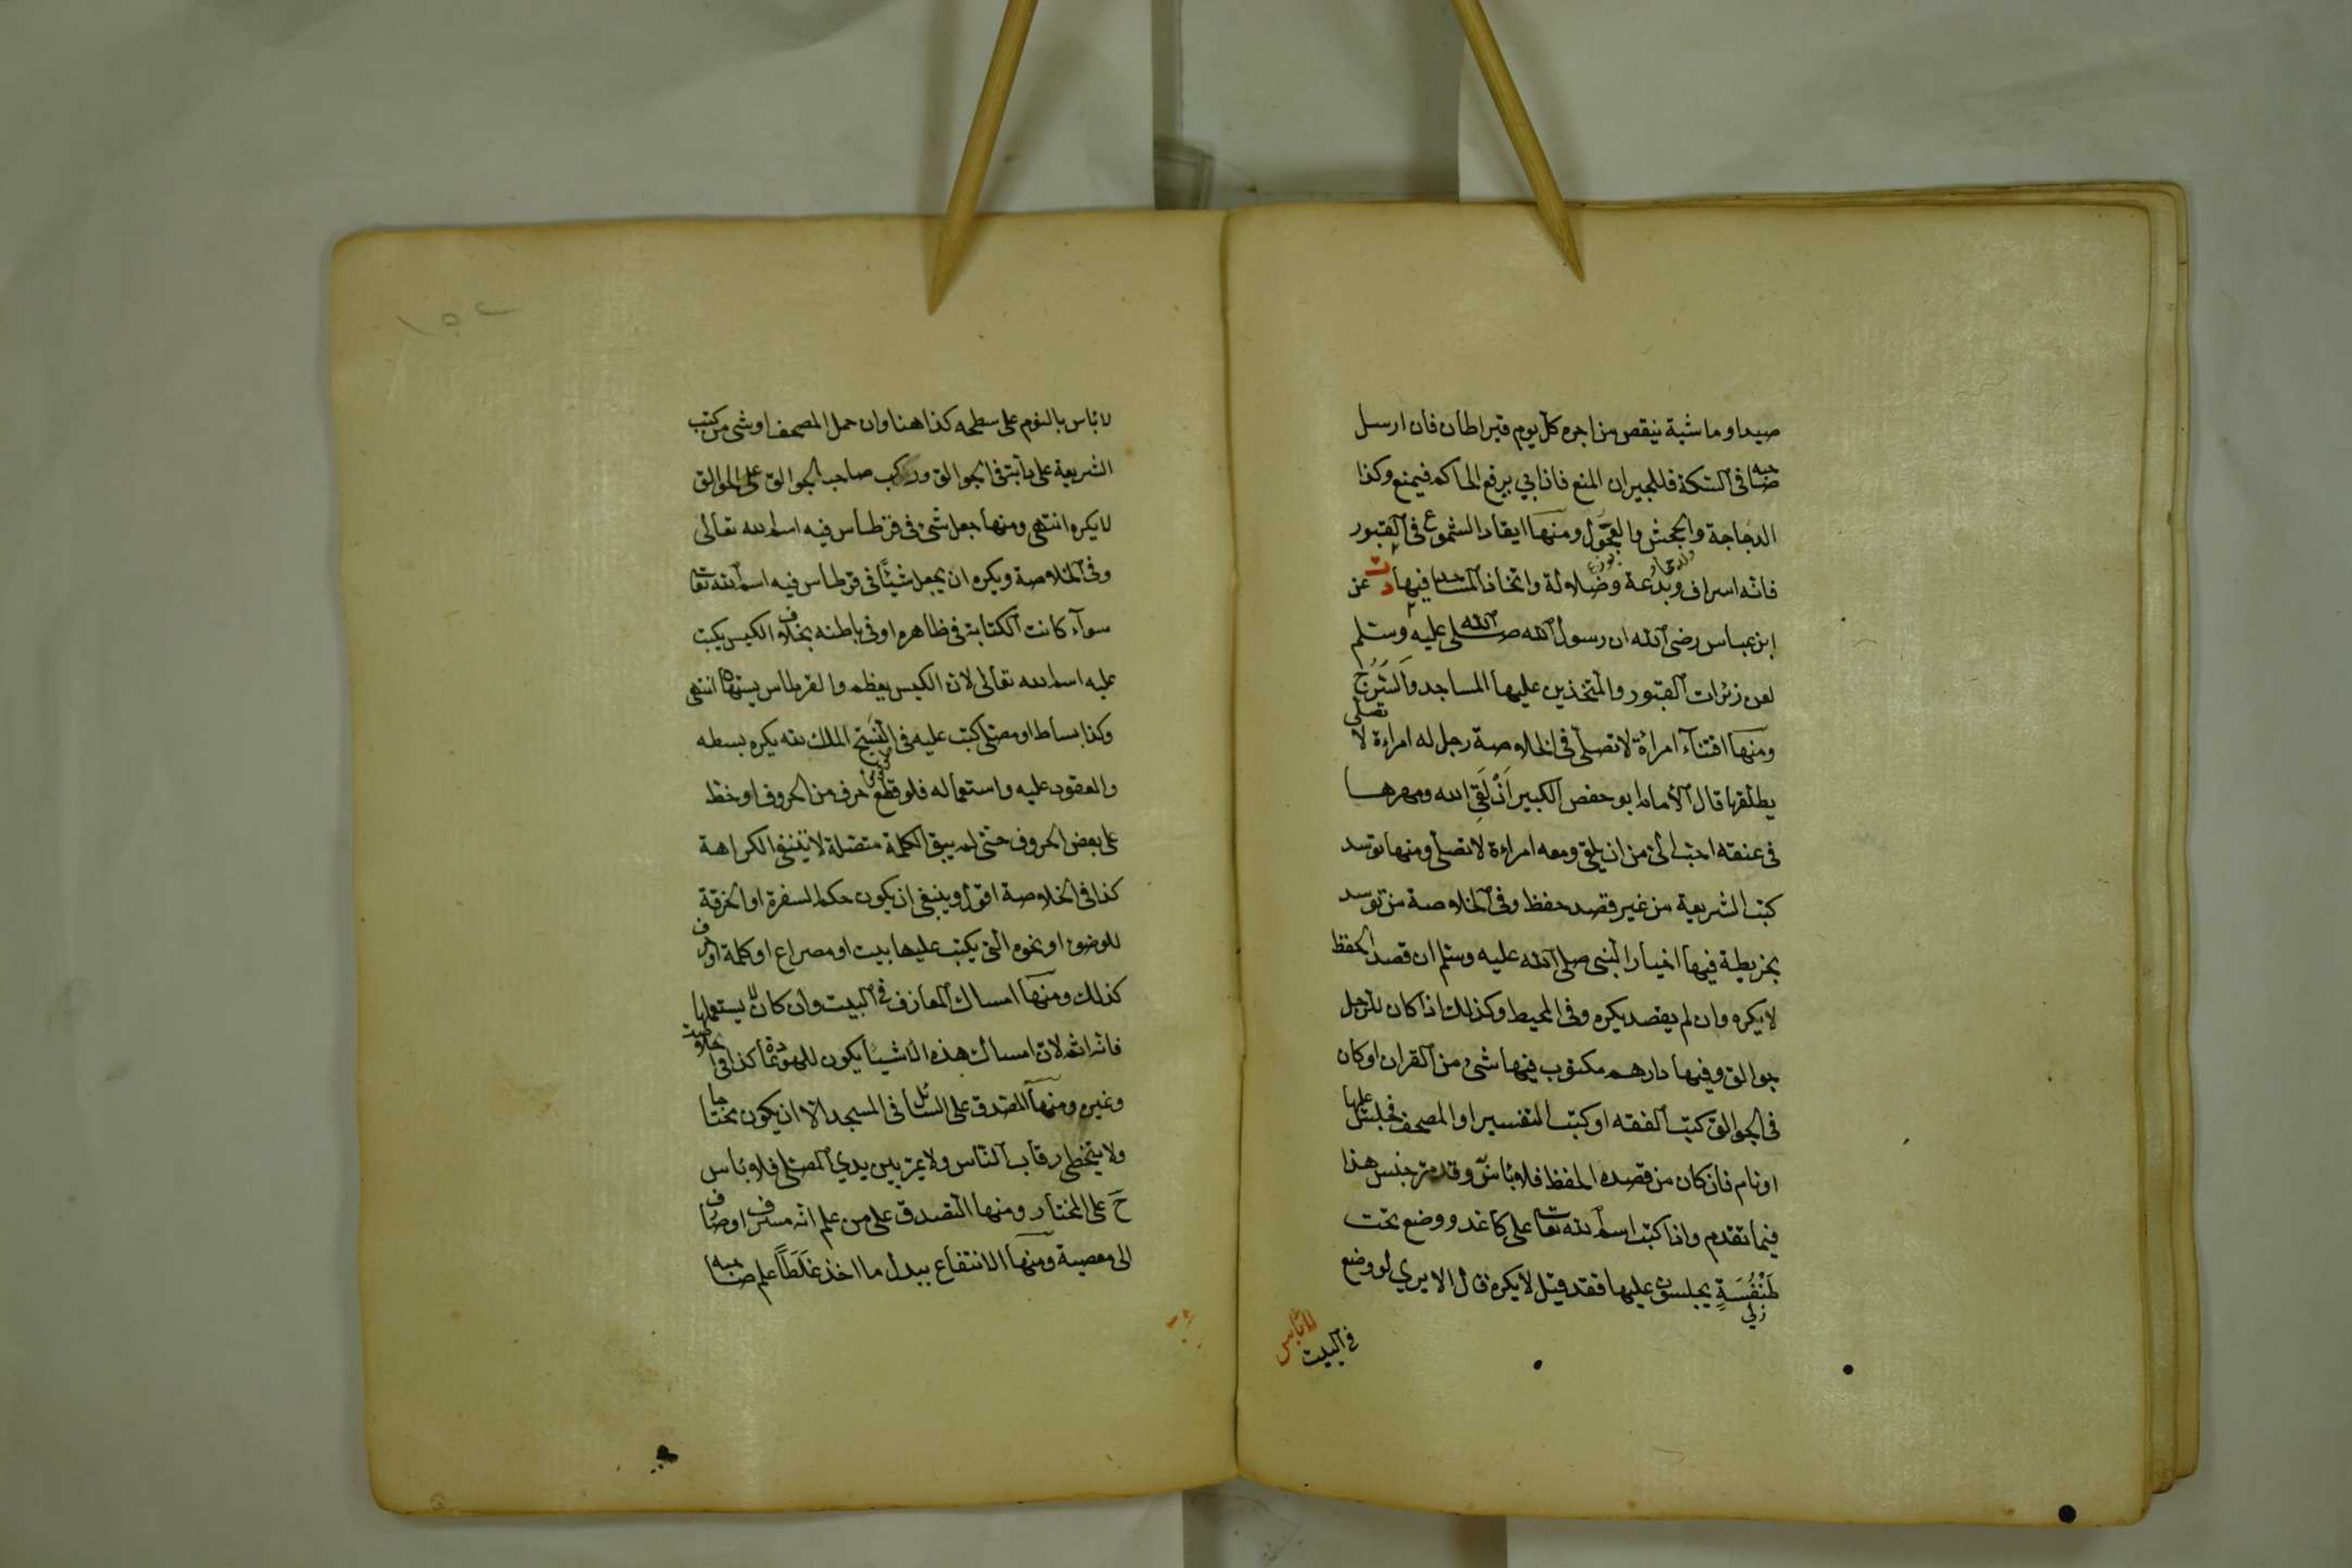 صيدا وماشية ينقص من اجره كل يوم قيراطان فان ارسل
صاحبه فى السكة فللجيران المنع فاذا ابي يرفع الى الحاكم فيمنع وكذا
الدجاجة والجحش والعجول ومنها ايقاد الشموع فى القبور
فانه اسراف وبدعة وضلالة واتخاذ المساجد فيها دت عن
ابن عباس رضى الله ان رسول الله صلى الله عليه وسلم
لعن زئرات القبور والمتخذين عليها المساجد والسرج
ومنها اقتناء امراة لا تصلى فى الخلاصة رجل له امراءة لا تصلى
يطلقها قال الامام ابو حفص الكبير ان لقى الله ومهرها
فى عنقه احب الى من ان يلقى ومعه امراءة لا تصلى ومنها توسد
كتب الشريعة من غير قصد حفظ وفى الخلاصة من توسد
بخريطة فيها اخبار النبى صلى الله عليه وسلم ان قصد الحفظ
لا يكره وان لم يقصد يكره وفى المحيط وكذلك اذا كان للرجل
جوالق وفيها دارهم مكتوب فيها شئ من القران او كان
فى الجوالق كتب الفقه او كتب التفسير او المصحف فجلس عليها
او نام فان كان من قصده الحفظ فلا بئاس وقد مر جنس هذا
فيما تقدم واذا كتب اسم الله تعا على كاغد ووضع تحت
طنفسة يجلسون عليها فقد قيل لا يكره قال الا يري لو وضع
زلي
فى البيت
لا بئاس
١٥٢
لا بئاس بالنوم على سطحه كذا هنا وان حمل المصحف او شى من كتب
الشريعة على دابة فى الجوالق وركب صاحب الجوالق على الجوالق
لا يكره انتهى ومنها جعل شئ فى قرطاس فيه اسم الله تعالى
وفى الخلاصة ويكره ان يجعل شيئا فى قرطاس فيه اسم الله تعا
سوآء كانت الكتابة فى ظاهره او فى باطنه بخلاف الكيس يكتب
عليه اسم الله تعالى لان الكيس يعظم والقرطاس يستهان انتهى
وكذا بساط او مصلى كتب عليه فى النسج الملك لله يكره بسطه
والعقود عليه واستعماله فلو قطع حرف من الحروف او خط
على بعض الحروف حتى لم يبق الكلمة متصلة لا تنتفى الكراهة
كذا فى الخلاصة اقول وينبغى ان يكون حكم السفرة او الخرقة
للوضوء او نحوه التى يكتب عليها بيت او مصراع او كلمة او حرف
كذلك ومنها امساك المعازف فى البيت وان كان لا يستعملها
فانه اثم لان امساك هذه الاشيا يكون للهو عادة كذا فى الخلاصة
وغيره ومنها التصدق على السائل فى المسجد الا ان يكون محتاجا
ولا يتخطى رقاب الناس ولا يمر بين يدي المصلى فلا بئاس
ح على المختار ومنها التصدق على من علم انه مسرف او صارف
الى معصية ومنها الانتفاع ببدل ما اخذ غلطا علم صاحبه